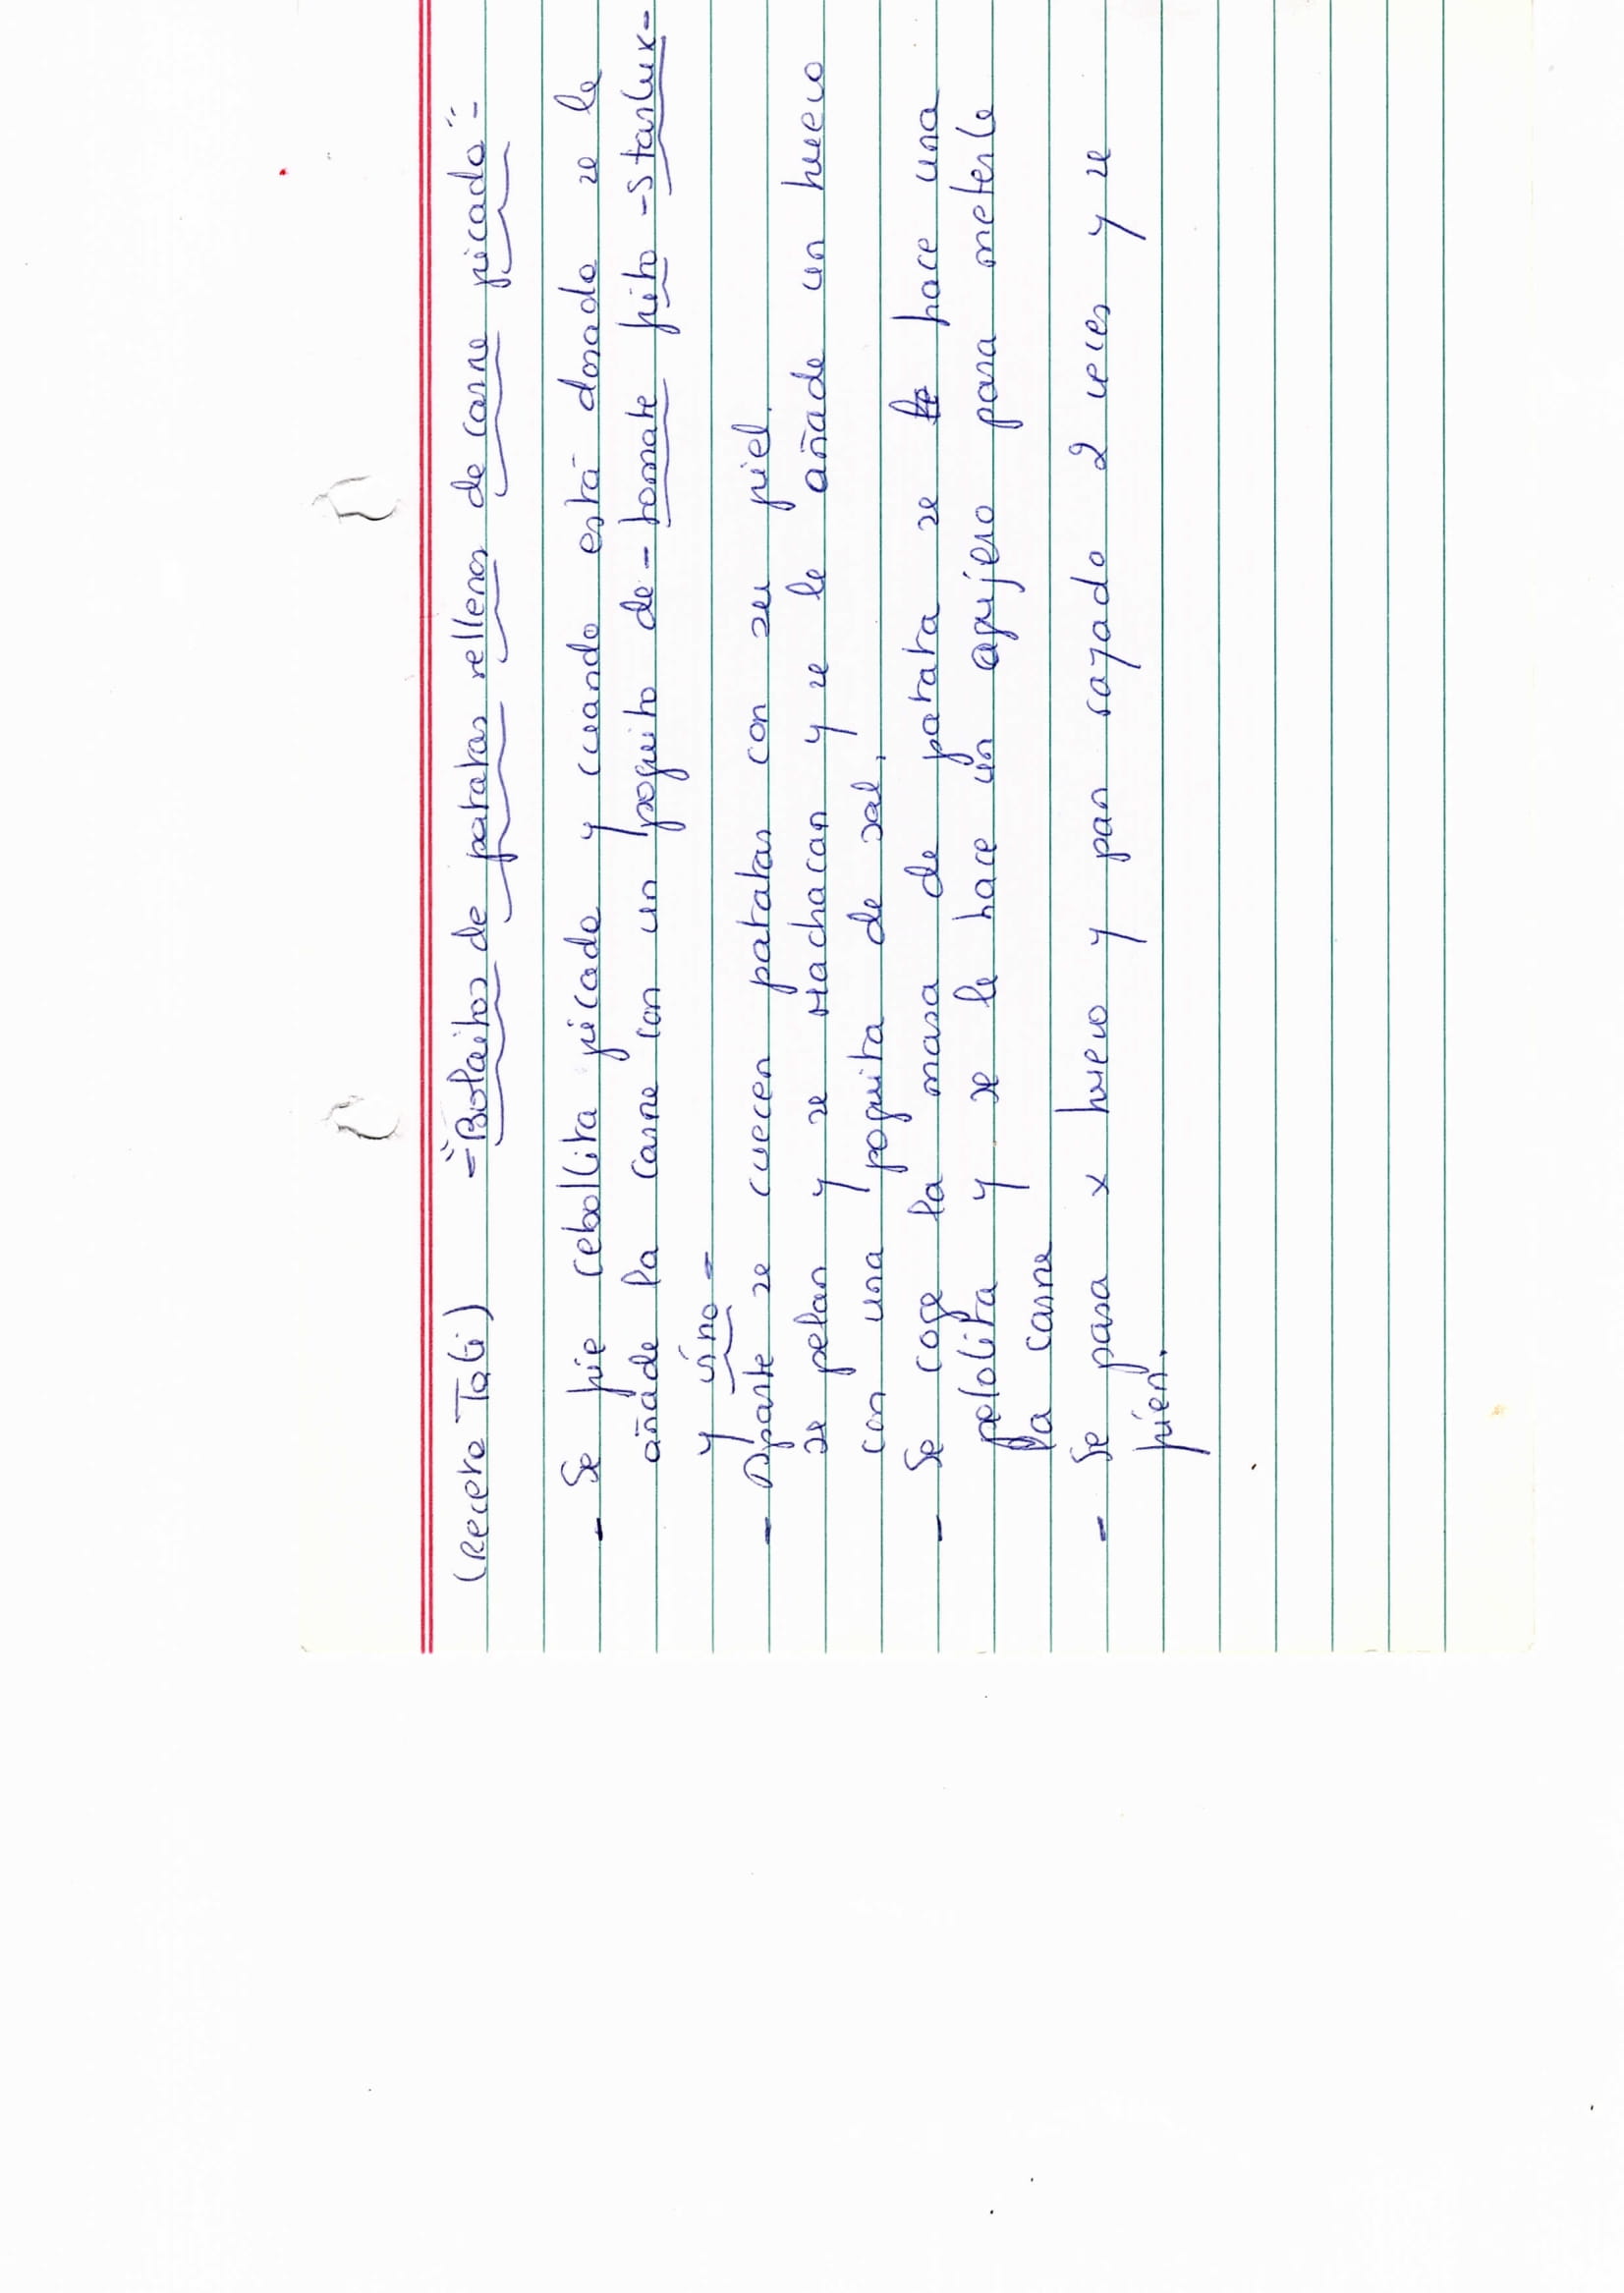 (Receta Tali) ="Bolaitos de patatas rellenos de carne picada"=
- Se fie cebollita picada y cuando está dorada se le
añade la carne con un poquito de - tomate frito - Starlux -
y vino =
- Aparte se cuecen patatas con su piel.
se pelan y se Machacan y se le añade un huevo
con una poquita de sal.
- Se coge la masa de patata se le hace una
pelotita y se le hace un agujero para meterle
la carne
= Se pasa x huevo y pan rayado 2 veces y se
fien.